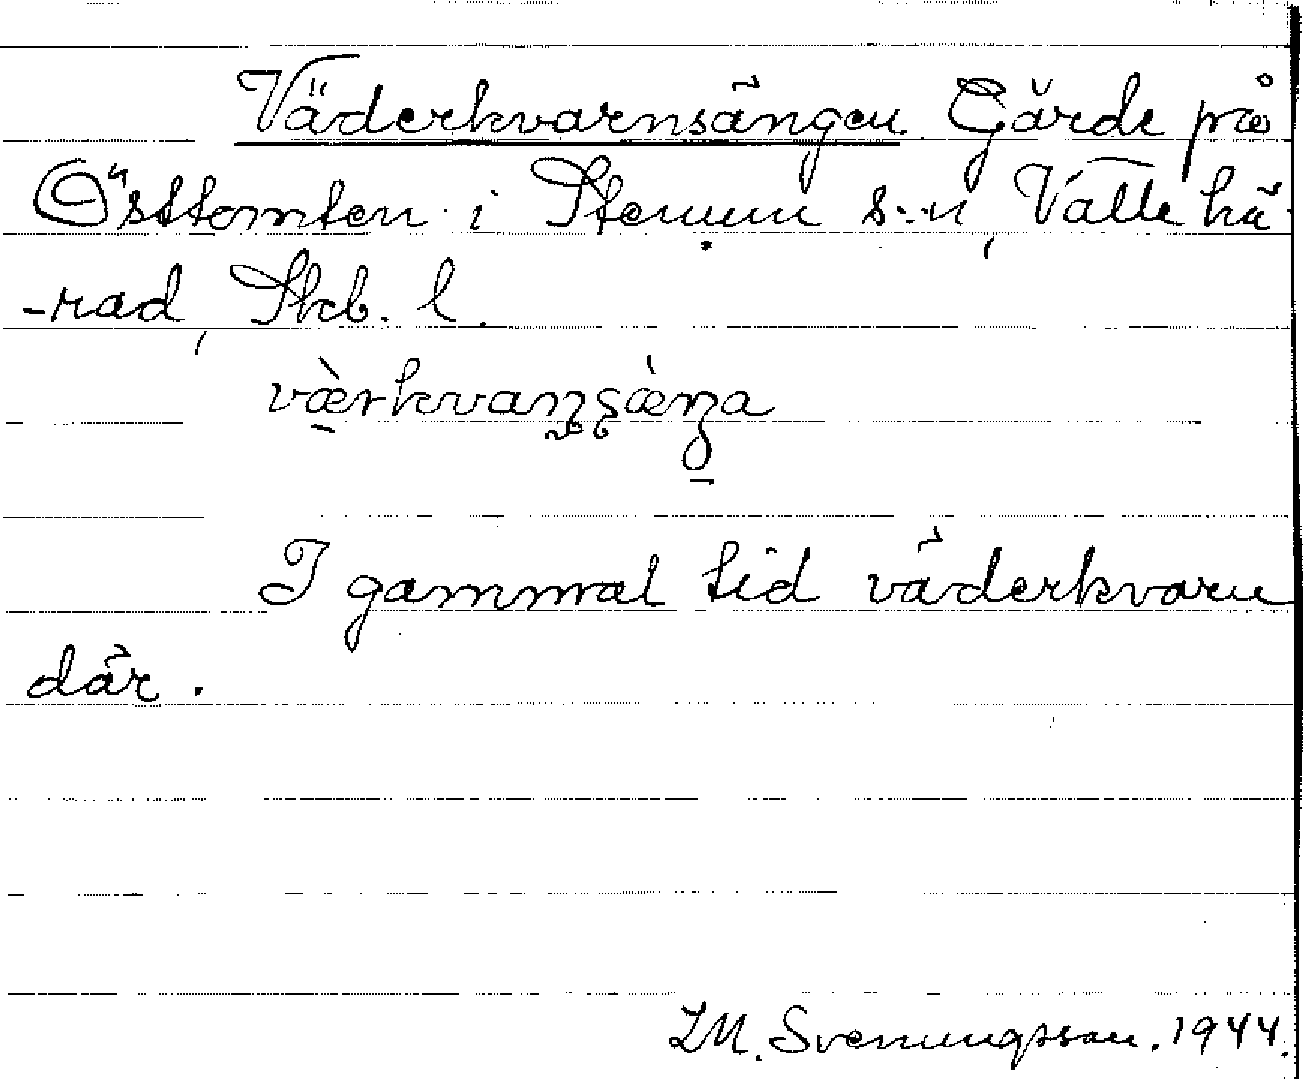 Väderkvarnsängen. Gärde på
Östtomten i Stenum s:n, Valle hä-
-rad, Skb. l.
værkvaṇṣæŋa
I gammal tid väderkvarn
där.
I.M. Svenungsson. 1944.